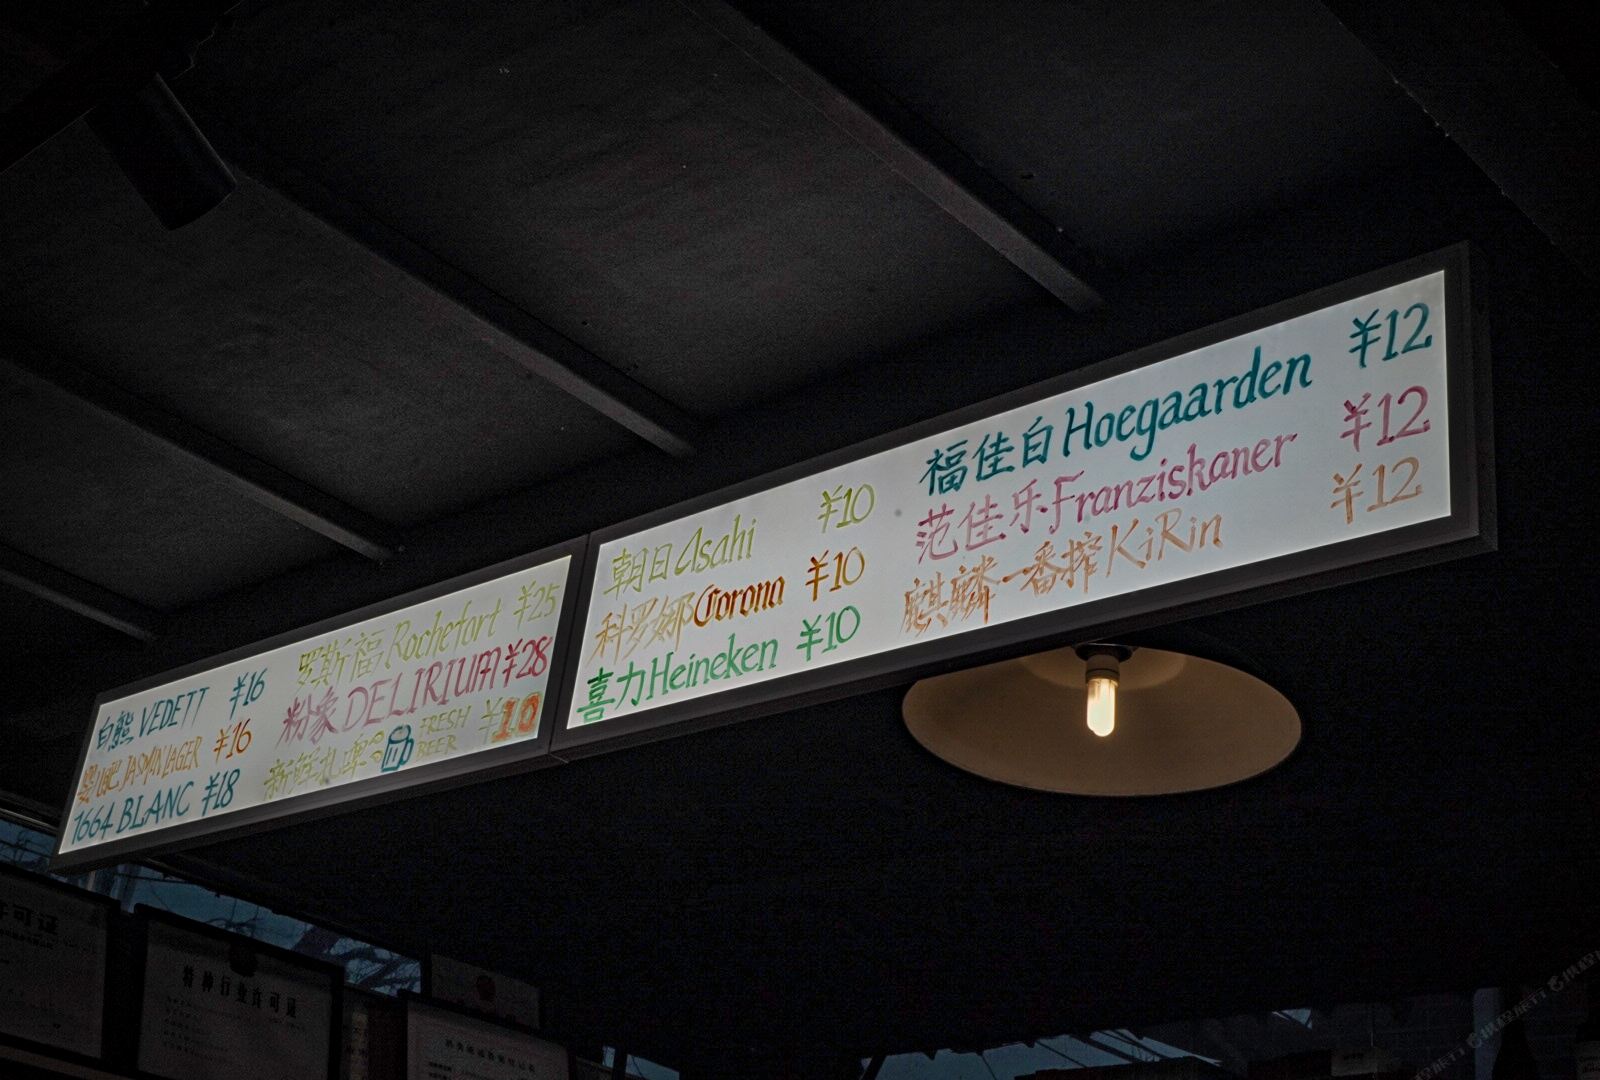 白熊 VEDETT ¥16
JASMIN LAGER ¥16
1664 BLANC ¥18
罗斯福 Rochefort ¥25
粉象 DELIRIUM ¥28
新鲜扎啤 FRESH BEER ¥10
朝日 Asahi ¥10
科罗娜 Corona ¥10
喜力 Heineken ¥10
福佳白 Hoegaarden ¥12
范佳乐 Franziskaner ¥12
麒麟一番搾 KiRin ¥12
许可证
特种行业许可证
携程旅行
携程旅行